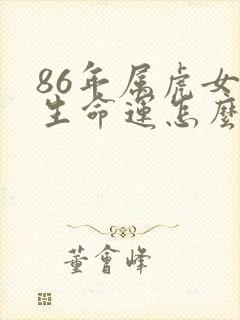 86年属虎女
生命运怎麽
董會峰